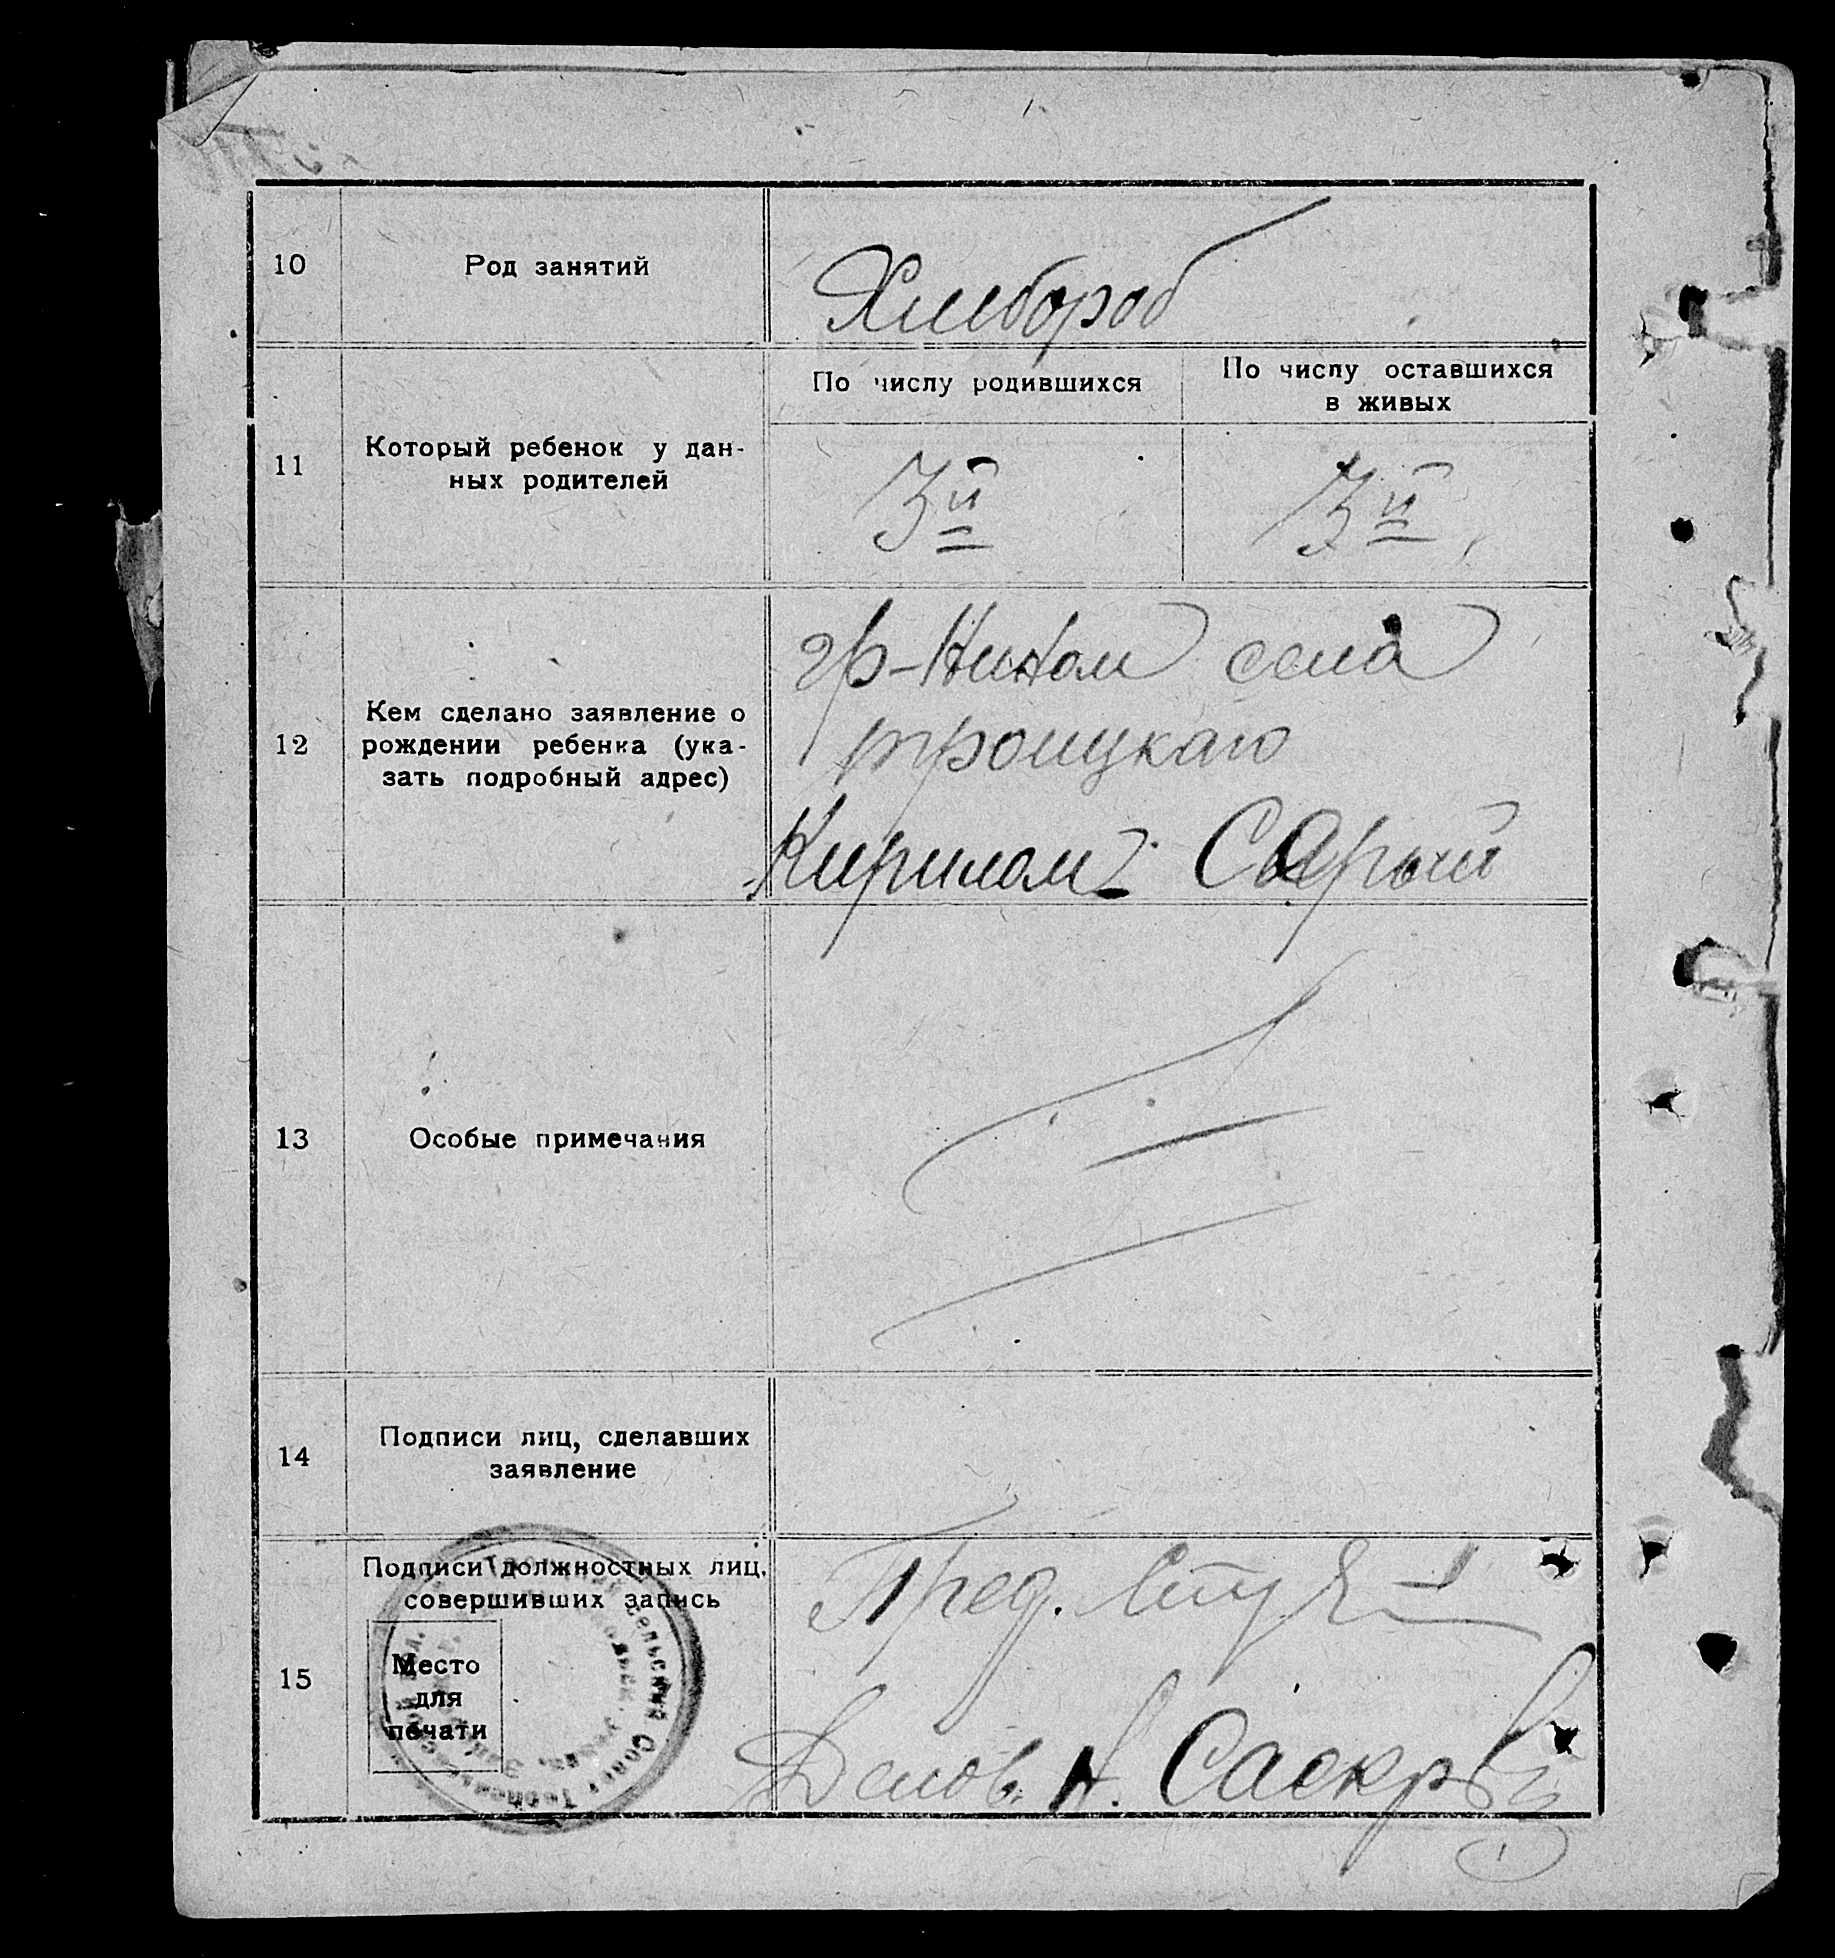 10
Род занятий
Хлебороб
11
Который ребенок у дан-
ных родителей
По числу родившихся
По числу оставшихся
в живых
3й
3й
12
Кем сделано заявление о
рождении ребенка (ука-
зать подробный адрес)
гр-нином села
троицкаго
Кирилом
13
Особые примечания
14
Подписи лиц, сделавших
заявление
15
Подписи должностных лиц,
совершивших запись
Место
для
печати
Пред.
Делов. Н.